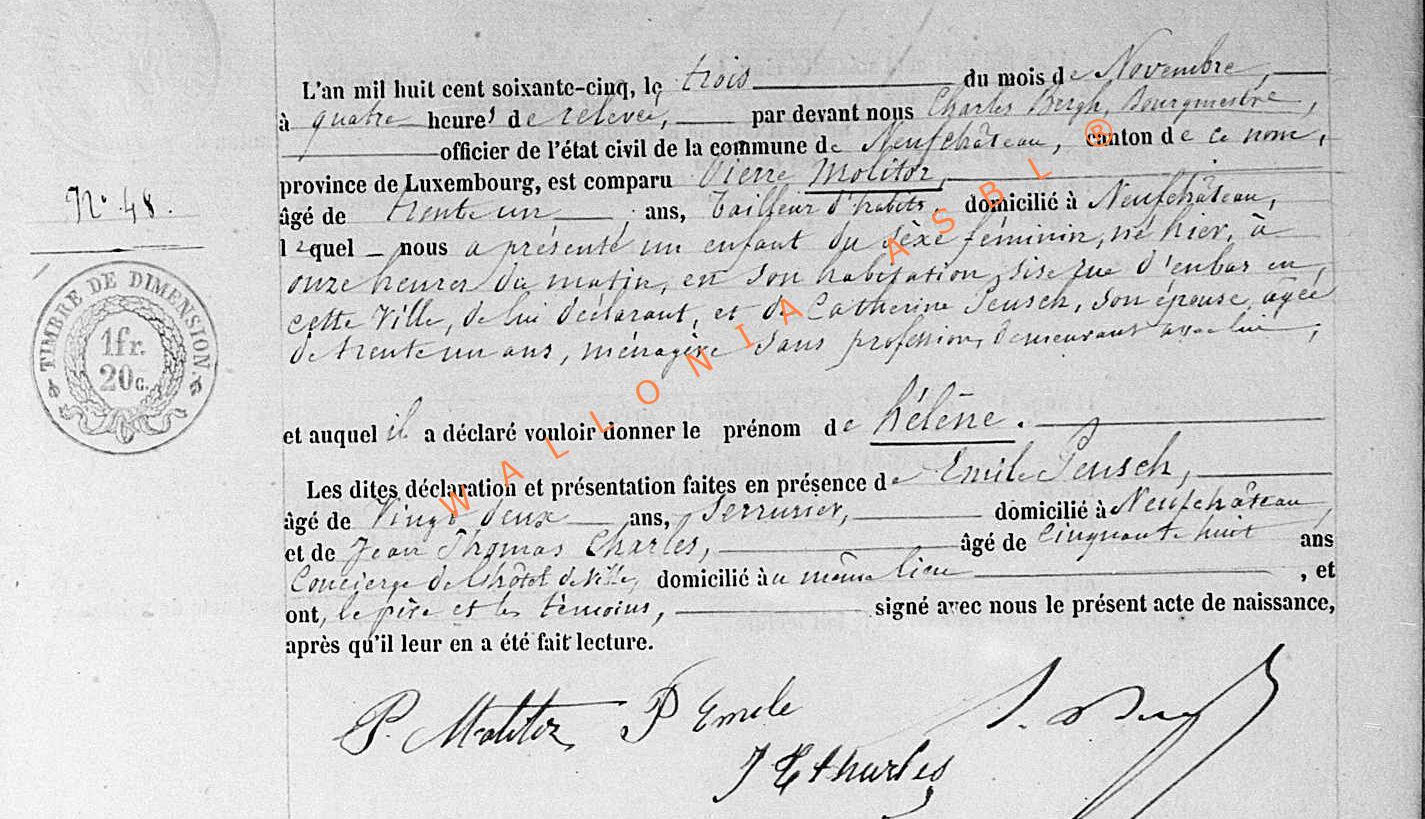 L'an mil huit cent soixante-cinq, le trois du mois de Novembre,
à quatre heures de relevée, par devant nous Charles Bergh, Bourgmestre,
officier de l'état civil de la commune de Neufchâteau, canton de ce nom,
province de Luxembourg, est comparu Pierre Molitor,
N° 48.
âgé de trente un ans, Tailleur d'habits, domicilié à Neufchâteau,
lequel nous a présenté un enfant du sèxe féminin, né hier, à
onze heures du matin, en son habitation, sise rue d'enbas en
cette Ville, de lui déclarant, et de Catherine Peusch, son épouse, agée
de trente un ans, ménagère sans profession, demeurant avec lui,
TIMBRE DE DIMENSION.
1fr.
20c.
et auquel il a déclaré vouloir donner le prénom de hélène.
Les dites déclaration et présentation faites en présence de Emile Peusch,
âgé de Vingt deux ans, Serrurier, domicilié à Neufchâteau,
et de Jean Thomas Charles, âgé de Cinquante huit ans
Concierge de l'hôtel de Ville, domicilié au même lieu, et
ont, le père et les témoins, signé avec nous le présent acte de naissance,
après qu'il leur en a été fait lecture.
P. Molitor P Emile
J T Charles
WALLONIA ASBL ®